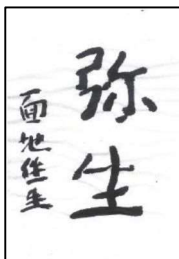 弥生
面地佳生